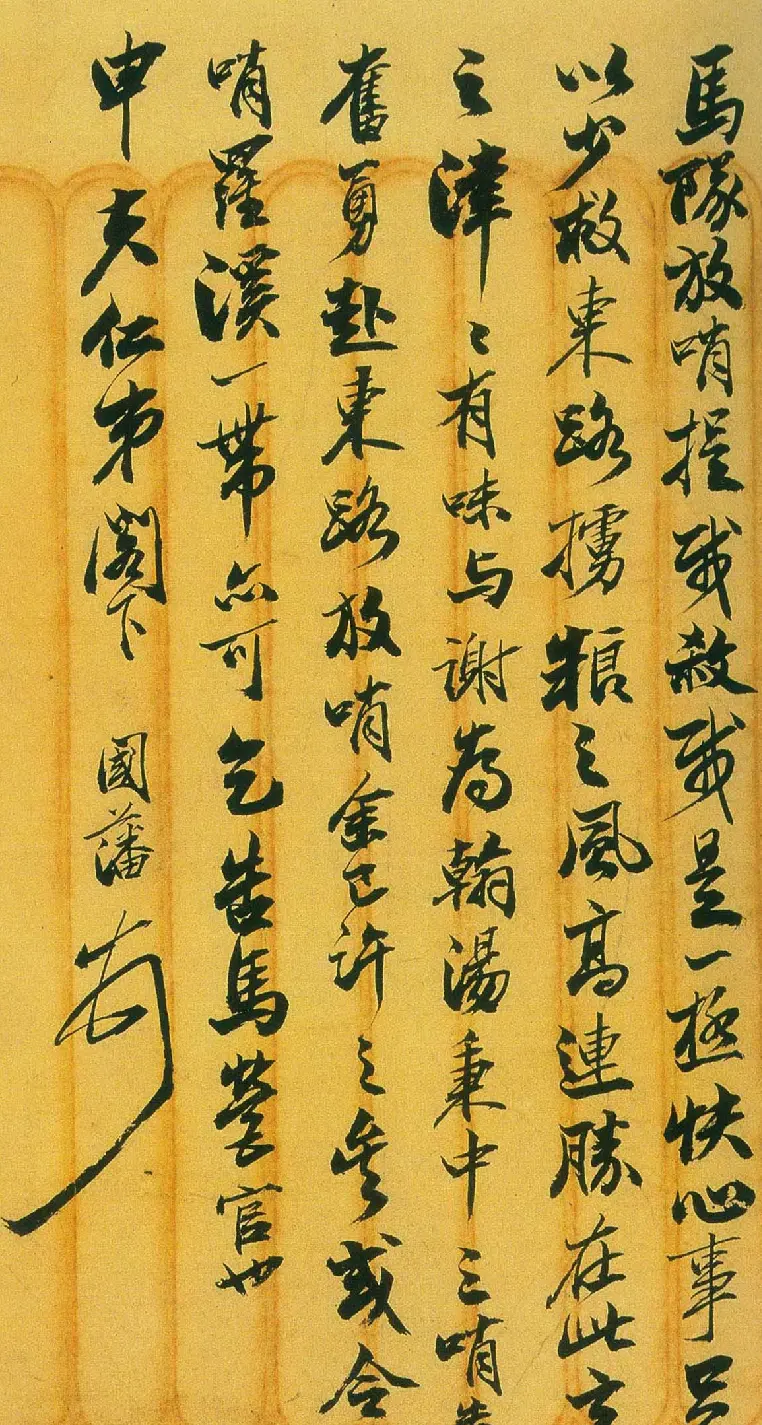 馬隊放哨捉賊殺賊是一極快心事足
以少救東路擄糧之風高連勝在此言
之津〻有味与謝為翰湯秉中三哨
奮勇赴東路放哨余已許之矣或令
哨羅溪一帶亦可乞告馬營官也
申夫仁弟閣下 國藩